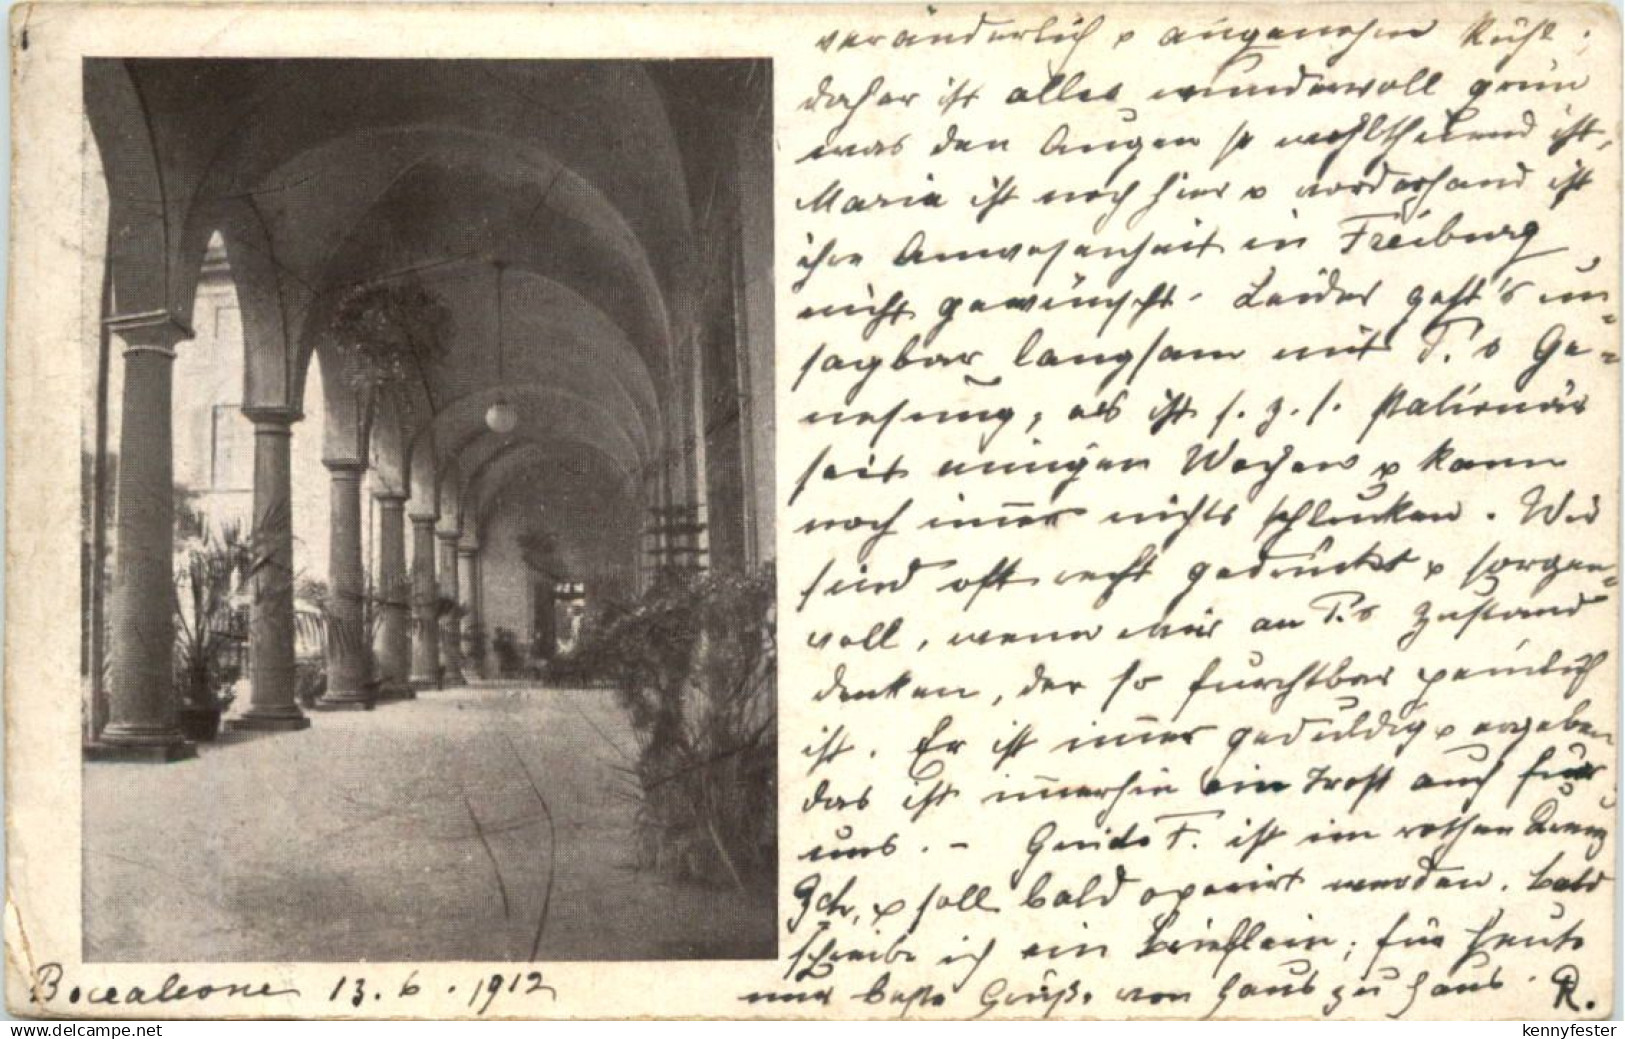 veränderlich & angenehm kühl;
daher ist alles wundervoll grün
was den Augen so wohlthuend ist,
Maria ist noch hier & vorderhand ist
ihre Anwesenheit in Freiburg
nicht gewünscht. Leider geht's un-
sagbar langsam mit T.s Ge-
nesung, es ist s. z. s. stationär
seit einigen Wochen & kann
noch im̅er nichts schlucken. Wir
sind oft recht gedrückt & sorgen-
voll, wenn wir an T.s Zustand
denken, der so furchtbar peinlich
ist. Er ist im̅er geduldig & ergeben
das ist im̅erhin ein Trost auch für
uns. - Guido F. ist im rothen Kreuz
& soll bald operirt werden. Bald
schreibe ich ein Brieflein; für heute
nur beste Grüße von Haus zu Haus. R.
Boccaleone 13.6.1912
www.delcampe.net
kennyfester